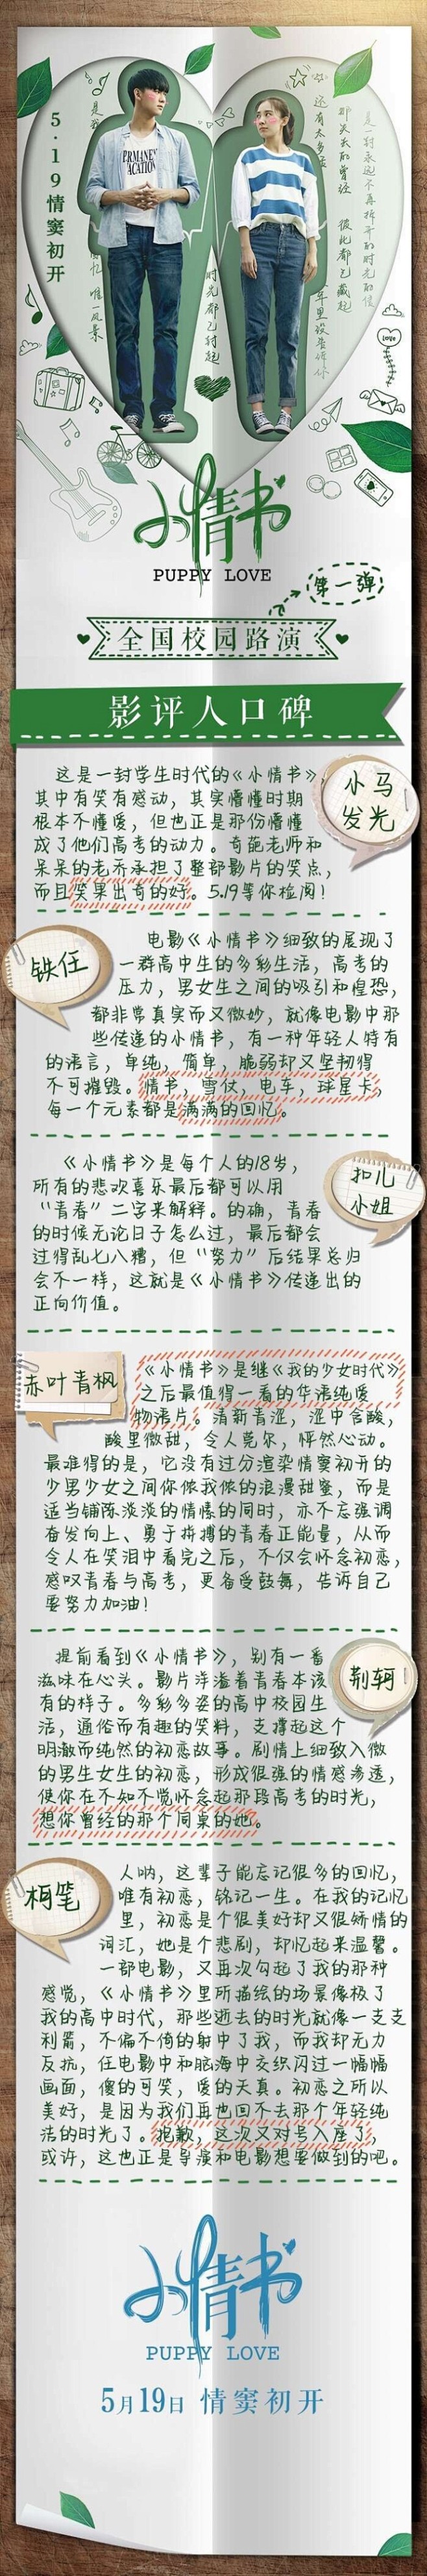 5·19情窦初开
还有太多
彼此都已藏起
是一封永远不再拆开的时光的信
忆 唯一风景
时光都已封起
LOVE
小情书
PUPPY LOVE
第一弹
全国校园路演
影评人口碑
小马
发光
这是一封学生时代的《小情书》
其中有笑有感动，其实懵懂时期
根本不懂爱，但也正是那份懵懂
成了他们高考的动力。奇葩老师和
呆呆的老乔承担了整部影片的笑点，
而且笑果出奇的好。5.19等你检阅！
铁任
电影《小情书》细致的展现了
一群高中生的多彩生活，高考的
压力，男女生之间的吸引和惶恐，
都非常真实而又微妙，就像电影中那
些传递的小情书，有一种年轻人特有
的语言，单纯，简单，脆弱却又坚韧得
不可摧毁。情书，雪仗，电车，球星卡，
每一个元素都是满满的回忆。
扣儿
小姐
《小情书》是每个人的18岁，
所有的悲欢喜乐最后都可以用
“青春”二字来解释。的确，青春
的时候无论日子怎么过，最后都会
过得乱七八糟，但“努力”后结果总归
会不一样，这就是《小情书》传递出的
正向价值。
赤叶青枫
《小情书》是继《我的少女时代》
之后最值得一看的华语纯爱
物语片。清新青涩，涩中含酸，
酸里微甜，令人莞尔，怦然心动。
最难得的是，它没有过分渲染情窦初开的
少男少女之间你侬我侬的浪漫甜蜜，而是
适当铺陈淡淡的情愫的同时，亦不忘强调
奋发向上、勇于拼搏的青春正能量，从而
令人在笑泪中看完之后，不仅会怀念初恋，
感叹青春与高考，更备受鼓舞，告诉自己
要努力加油！
荆轲
提前看到《小情书》，别有一番
滋味在心头。影片洋溢着青春本该
有的样子。多彩多姿的高中校园生
活，通俗而有趣的笑料，支撑起这个
明澈而纯然的初恋故事。剧情上细致入微
的男生女生的初恋，形成很强的情感渗透，
使你在不知不觉怀念起那段高考的时光，
想你曾经的那个同桌的她。
桐笔
人呐，这辈子能忘记很多的回忆，
唯有初恋，铭记一生。在我的记忆
里，初恋是个很美好却又很矫情的
词汇，她是个悲剧，却忆起来温馨。
一部电影，又再次勾起了我的那种
感觉，《小情书》里所描绘的场景像极了
我的高中时代，那些逝去的时光就像一支支
利箭，不偏不倚的射中了我，而我却无力
反抗，任电影中和脑海中交织闪过一幅幅
画面，傻的可笑，爱的天真。初恋之所以
美好，是因为我们再也回不去那个年轻纯
洁的时光了。抱歉，这次又对号入座了，
或许，这也正是导演和电影想要做到的吧。
小情书
PUPPY LOVE
5月19日 情窦初开